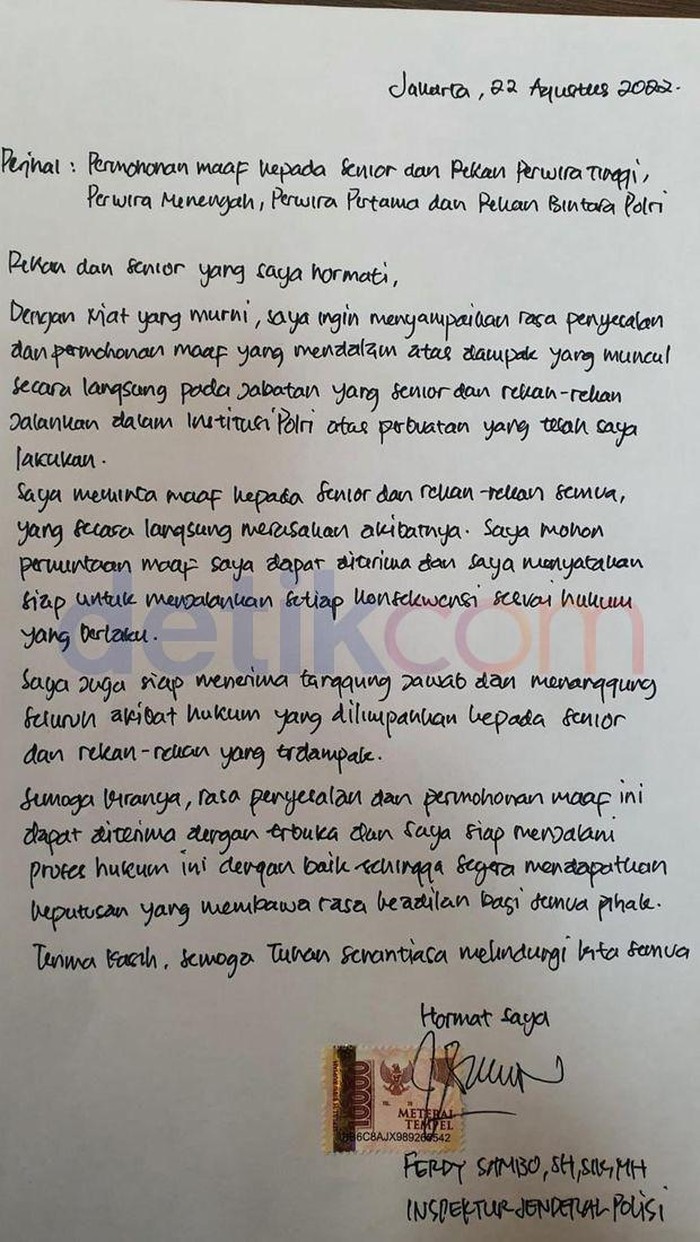 Jakarta, 22 Agustus 2022.
Perihal : Permohonan maaf kepada Senior dan Rekan Perwira Tinggi,
Perwira Menengah, Perwira Pertama dan Rekan Bintara Polri
Rekan dan Senior yang saya hormati,
Dengan Niat yang murni, saya ingin menyampaikan rasa penyesalan
dan permohonan maaf yang mendalam atas dampak yang muncul
secara langsung pada Jabatan yang senior dan rekan-rekan
Jalankan dalam Institusi Polri atas perbuatan yang telah saya
lakukan.
Saya meminta maaf kepada Senior dan rekan-rekan semua,
yang secara langsung merasakan akibatnya. Saya mohon
permintaan maaf saya dapat diterima dan saya menyatakan
siap untuk menjalankan setiap konsekwensi sesuai hukum
yang berlaku.
detikcom
Saya Juga siap menerima tanggung Jawab dan menanggung
seluruh akibat hukum yang dilimpahkan kepada senior
dan rekan-rekan yang terdampak.
Semoga kiranya, rasa penyesalan dan permohonan maaf ini
dapat diterima dengan terbuka dan saya siap menjalani
proses hukum ini dengan baik sehingga segera mendapatkan
keputusan yang membawa rasa keadilan bagi semua pihak.
Terima kasih, semoga Tuhan senantiasa melindungi kita semua
Hormat saya
10000
METERAI
TEMPEL
6C8AJX989260542
FERDY SAMBO, SH, SIK, MH
INSPEKTUR JENDERAL POLISI